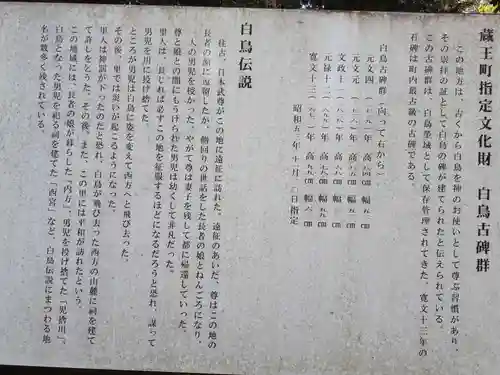 蔵王町指定文化財　白鳥古碑群
この地方は、古くから白鳥を神のお使いとして尊ぶ習慣があり、
その崇拝の証として白鳥の碑が建てられたと伝えられている。
この古碑群は、白鳥墓域として保存管理されてきた。寛文十三年の
石碑は町内最古級の古碑である。
白鳥古碑群（向って右から）
元文四
元文元
文政十
元禄十二
寛文十三
昭和五
指定
白鳥伝説
往古、日本武尊がこの地に遠征に訪れた。遠征のあいだ、尊はこの地の
長者の館に逗留したが、幾回りの世話をした長者の娘とねんごろになり、
一人の男児を授かった。やがて尊は妻子を残して都に帰還していった。
尊と娘との間にもうけられた男児は幼くして非凡だった。
里人は、長じれば必ずこの地を征服するほどになるだろうと恐れ、謀って
男児を川に投げ捨てた。
ところが男児は白鳥に姿を変えて西方へと飛び去った。
その後、里では災いが起こるようになった。
里人は神罰が下ったのだと恐れ、白鳥が飛び去った西方の山麓に祠を建て
て許しを乞うた。その後、また、この里には平和が訪れたという。
この地域には、長者の娘が暮らした「内方」、男児を投げ捨てた「児捨川」、
白鳥となった男児を祀る祠を建てた「西宮」など、白鳥伝説にまつわる地
名が数多く残されている。